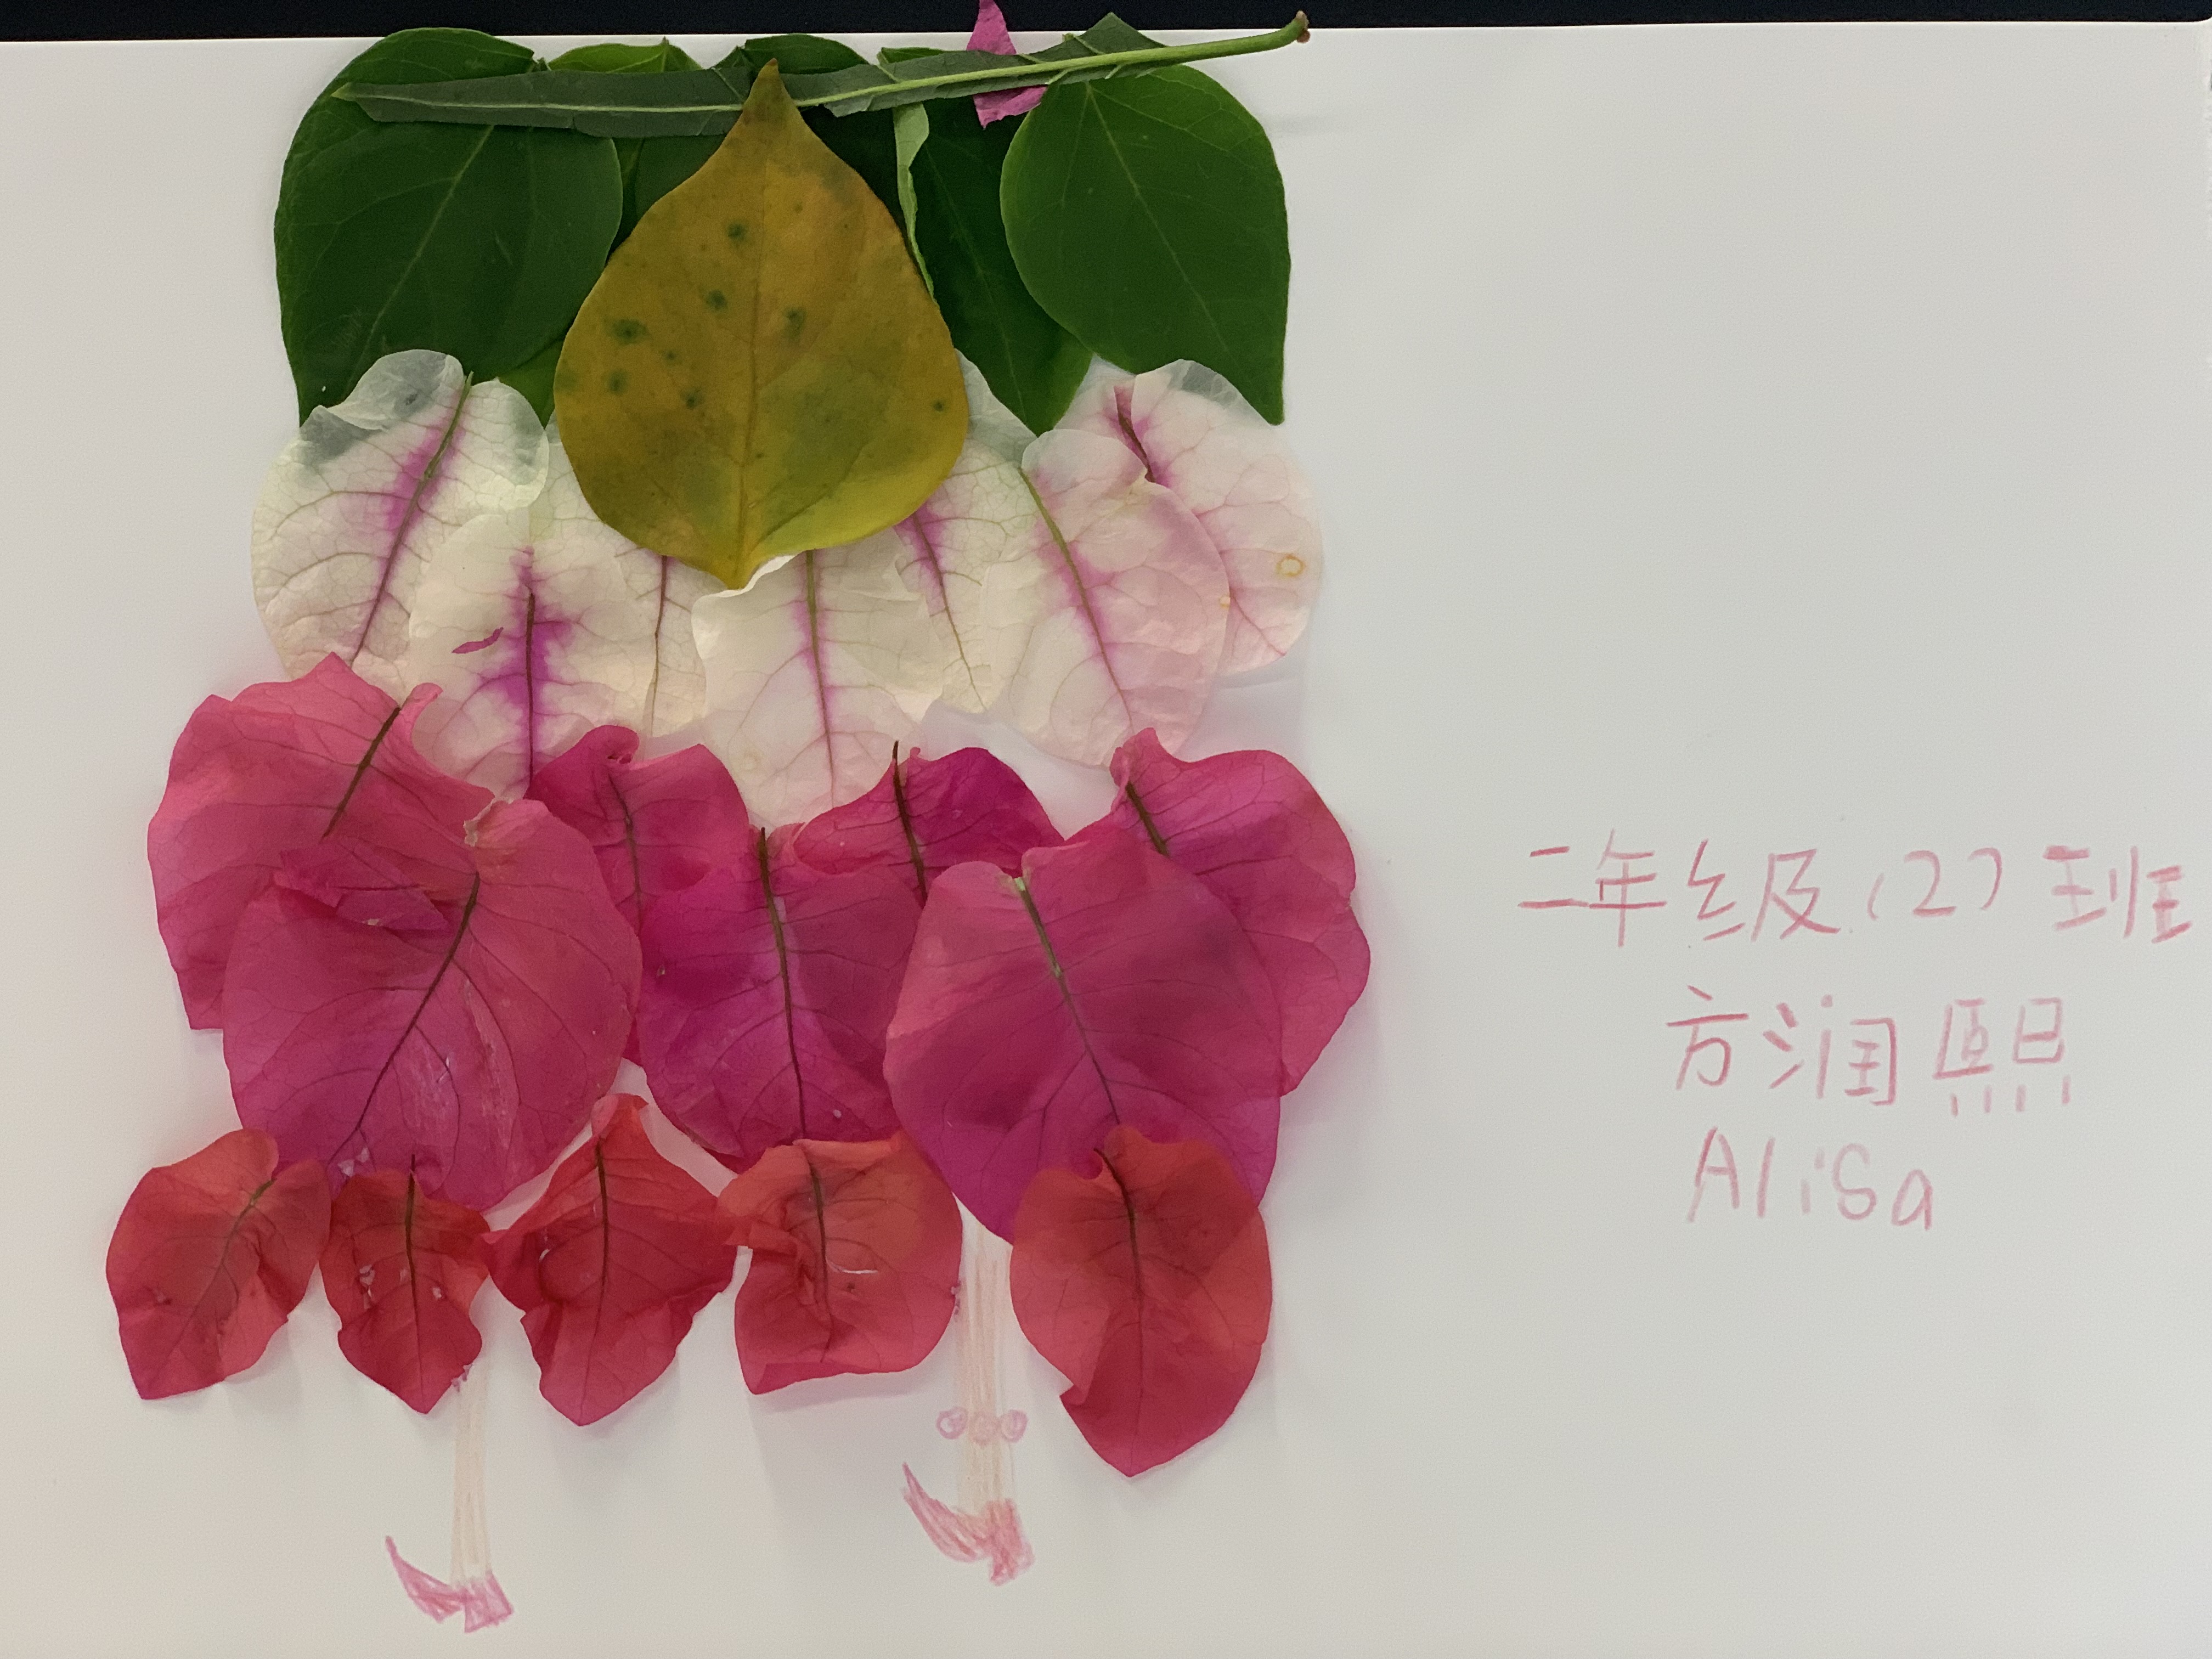 二年级(2)班
方润熙
AliSa